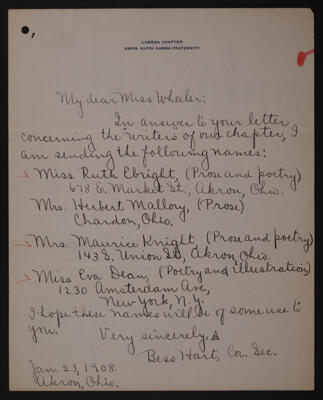 LAMBDA CHAPTER
KAPPA KAPPA GAMMA FRATERNITY
My dear Miss Wheeler:
In answer to your letter
concerning the "writers" of our chapter, I
am sending the following names:
Miss Ruth Ebright, (Prose and poetry)
678 E. Market St., Akron, Ohio.
Mrs. Herbert Mallory, (Prose)
Chardon, Ohio.
Mrs. Maurice Knight (Prose and poetry)
143 S. Union St, Akron, Ohio.
Miss Eva Dean, (Poetry and illustration)
1230 Amsterdam Ave,
New York, N.Y.
I hope these names will be of some use to
you.
Very sincerely,
Bess Hart, Cor. Sec.
Jan. 23, 1908.
Akron, Ohio.